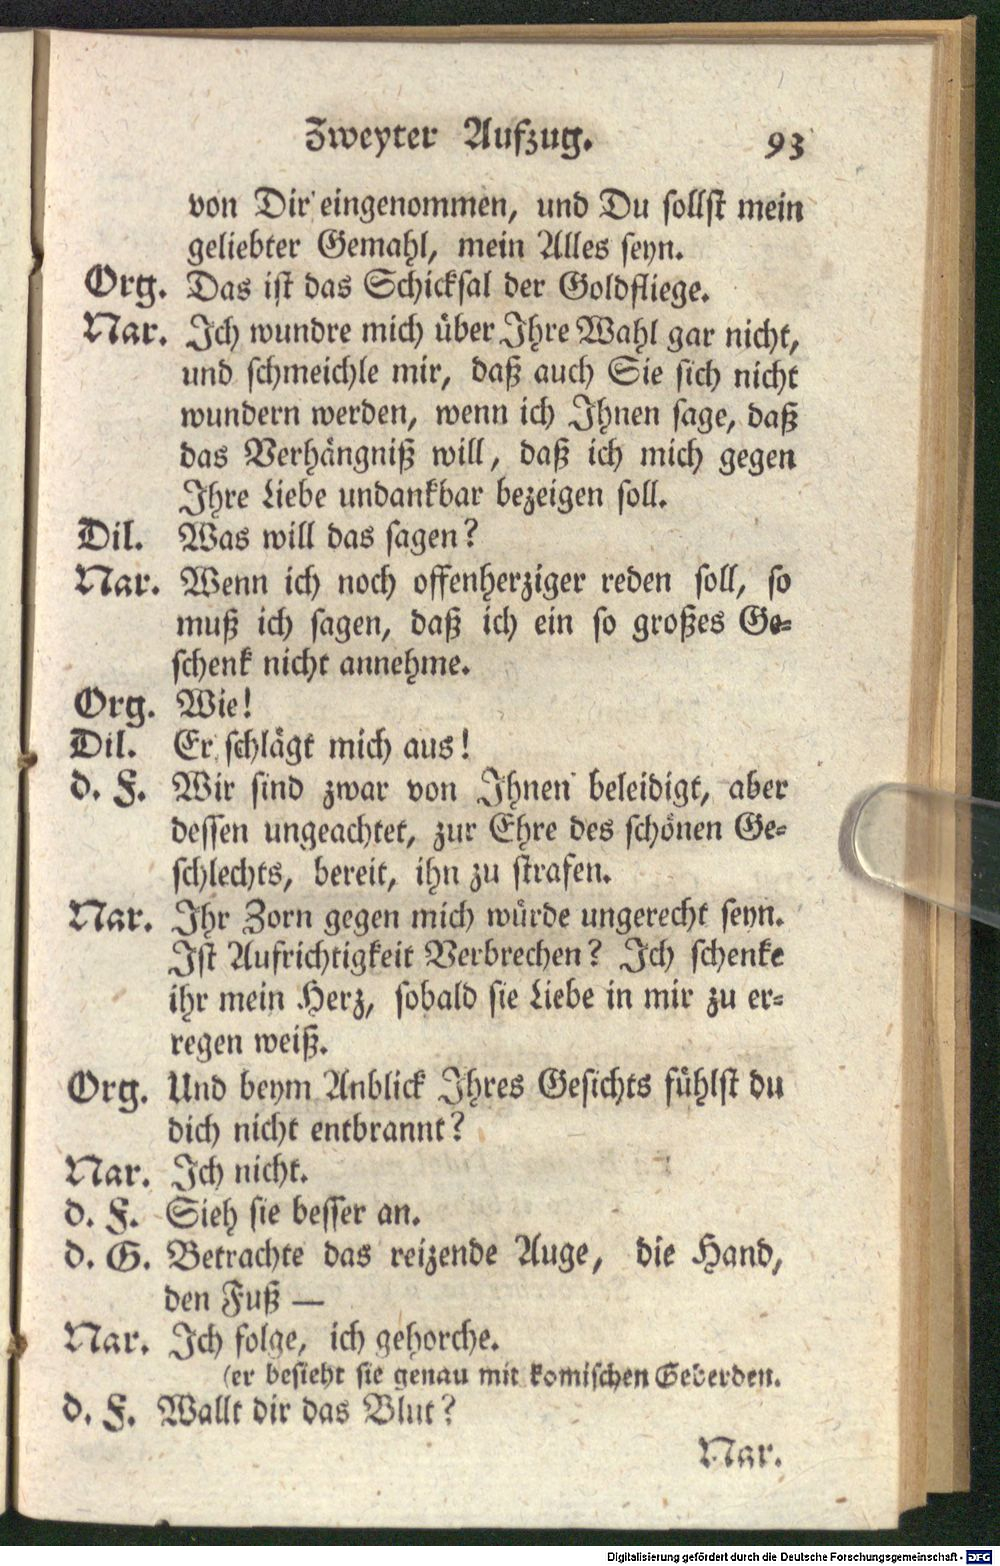 Zweyter Aufzug. 93
von Dir eingenommen, und Du sollst mein
geliebter Gemahl, mein Alles seyn.
Org. Das ist das Schicksal der Goldfliege.
Nar. Ich wundre mich über Ihre Wahl gar nicht,
und schmeichle mir, daß auch Sie sich nicht
wundern werden, wenn ich Ihnen sage, daß
das Verhängniß will, daß ich mich gegen
Ihre Liebe undankbar bezeigen soll.
Dil. Was will das sagen?
Nar. Wenn ich noch offenherziger reden soll, so
muß ich sagen, daß ich ein so großes Ge-
schenk nicht annehme.
Org. Wie!
Dil. Er schlägt mich aus!
d. F. Wir sind zwar von Ihnen beleidigt, aber
dessen ungeachtet, zur Ehre des schönen Ge-
schlechts, bereit, ihn zu strafen.
Nar. Ihr Zorn gegen mich würde ungerecht seyn.
Ist Aufrichtigkeit Verbrechen? Ich schenke
ihr mein Herz, sobald sie Liebe in mir zu er-
regen weiß.
Org. Und beym Anblick Ihres Gesichts fühlst du
dich nicht entbrannt?
Nar. Ich nicht.
d. F. Sieh sie besser an.
d. G. Betrachte das reizende Auge, die Hand,
den Fuß —
Nar. Ich folge, ich gehorche.
(er besieht sie genau mit komischen Geberden.
d. F. Wallt dir das Blut?
Nar.
Digitalisierung gefördert durch die Deutsche Forschungsgemeinschaft - DFG